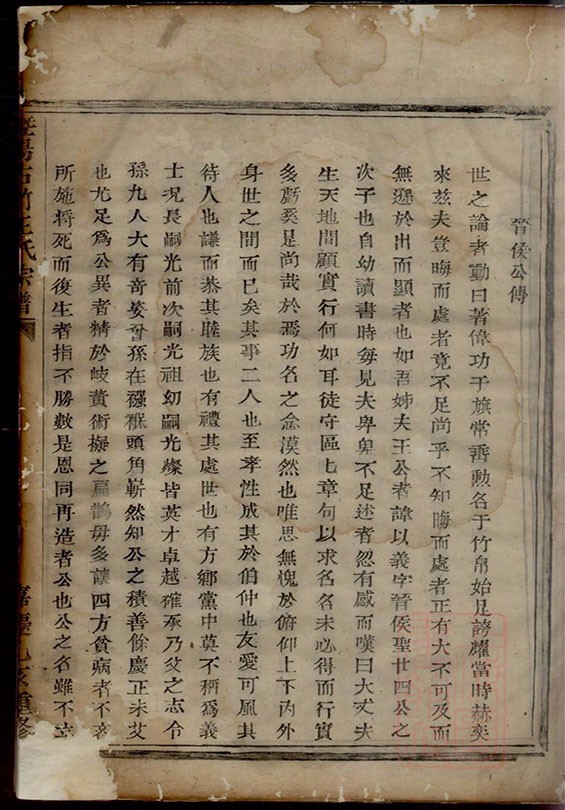 晉侯公傳
世之論者動曰著偉功于旗常垂勲名于竹帛始足誇耀當時赫奕
來玆夫豈晦而處者竟不足尚乎不知晦而處者正有大不可及而
無遜於出而顯者也如吾姊夫王公者諱以義字晉侯聖廿四公之
次子也自幼讀書時每見夫卑卑不足述者忽有感而嘆曰大丈夫
生天地間顧實行何如耳徒守區匕章句以求名名未必得而行實
多虧奚是尚哉於焉功名之念漠然也唯思無愧於俯仰上下內外
身世之間而巳矣其事二人也至孝性成其於伯仲也友愛可風其
待人也謙而恭其睦族也有禮其處世也有方鄉黨中莫不稱爲義
士况長嗣光前次嗣光祖幼嗣光燦皆英才卓越確承乃父之志令
孫九人大有奇姿曾孫在襁褓頭角嶄然知公之積善餘慶正未艾
也尤足爲公異者精於岐黃術擬之扁鵲毋多讓四方貧病者不
所施將死而復生者指不勝數是恩同再造者公也公之名雖不
石竹王氏宗譜
重修